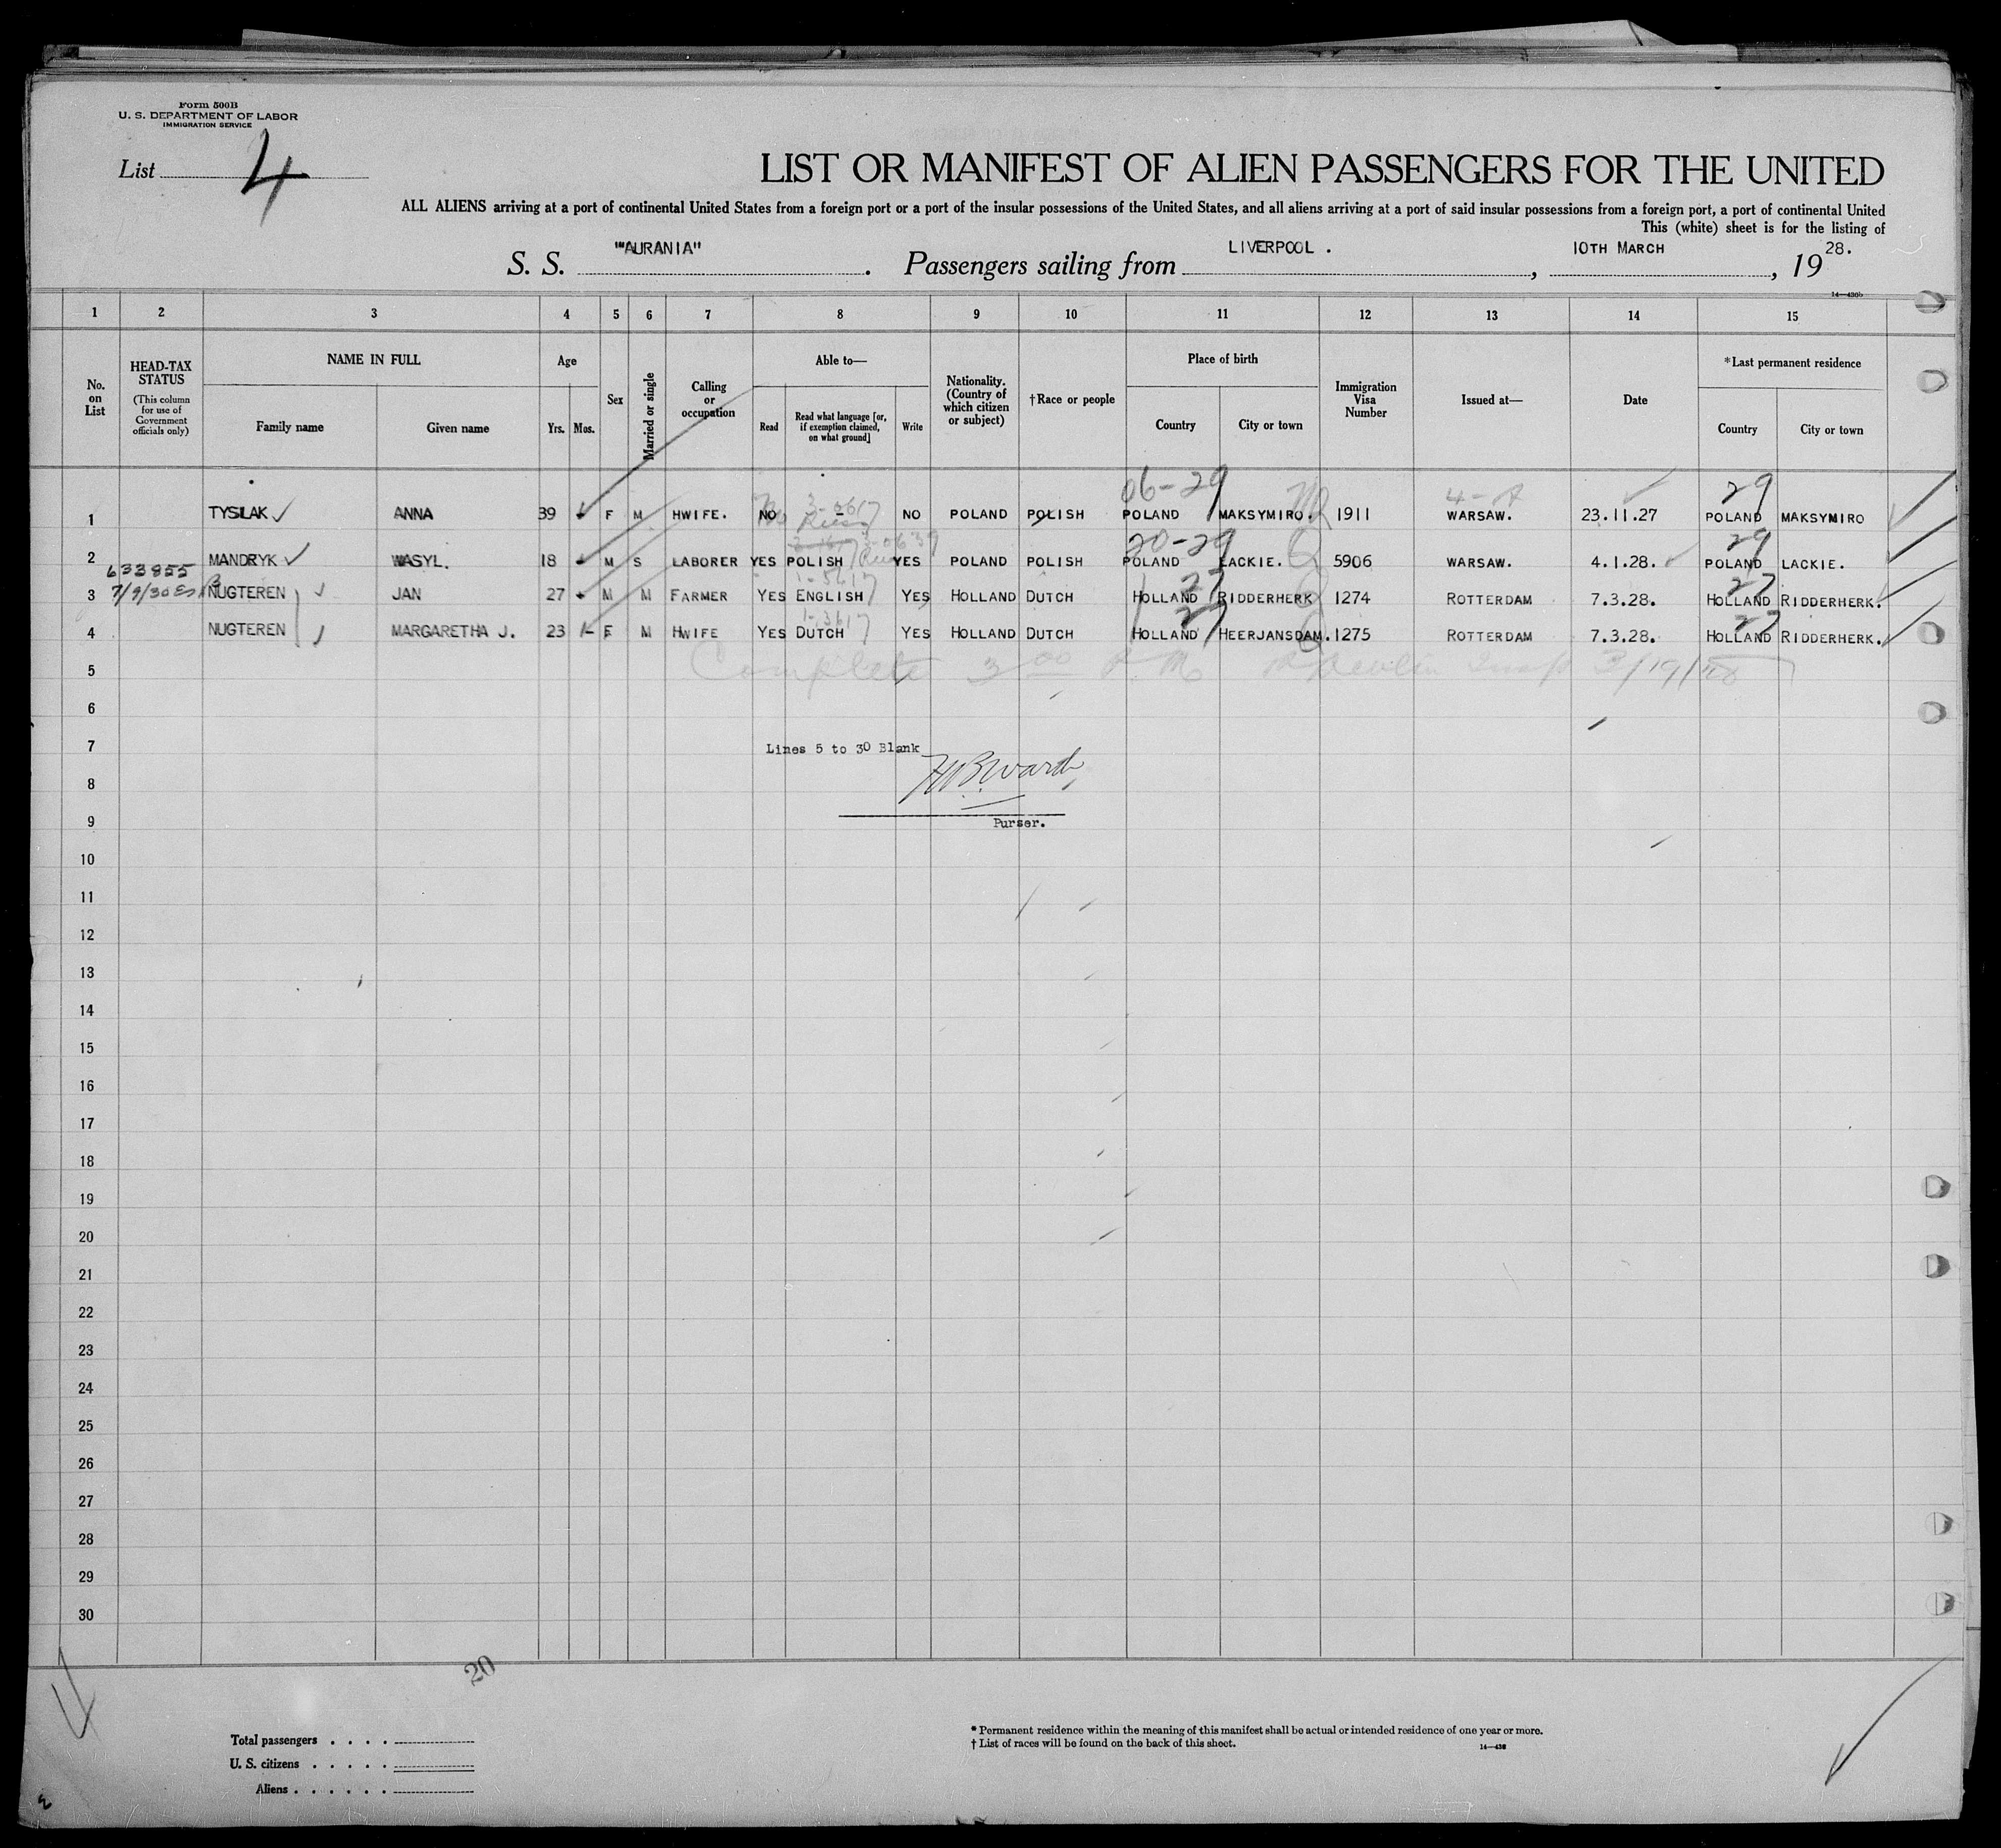 Form 500B
U. S. DEPARTMENT OF LABOR
IMMIGRATION SERVICE
List 4
LIST OR MANIFEST OF ALIEN PASSENGERS FOR THE UNITED
ALL ALIENS arriving at a port of continental United States from a foreign port or a port of the insular possessions of the United States, and all aliens arriving at a port of said insular possessions from a foreign port, a port of continental United
This (white) sheet is for the listing of
S. S. "AURANIA" . Passengers sailing from LIVERPOOL . , 10TH MARCH , 19 28.
14—430b
1 2 3 4 5 6 7 8 9 10 11 12 13 14 15
No. on List
HEAD-TAX STATUS (This column for use of Government officials only)
NAME IN FULL Family name Given name
Age Yrs. Mos.
Sex
Married or single
Calling or occupation
Able to— Read Read what language [or, if exemption claimed, on what ground] Write
Nationality. (Country of which citizen or subject)
†Race or people
Place of birth Country City or town
Immigration Visa Number
Issued at—
Date
*Last permanent residence Country City or town
06-29 29
1 TYSILAK ANNA 39 F M HWIFE. NO - NO POLAND POLISH POLAND MAKSYMIRO. 1911 WARSAW. 23.11.27 POLAND MAKSYMIRO
20-29 29
2 MANDRYK WASYL. 18 M S LABORER YES POLISH YES POLAND POLISH POLAND LACKIE. 5906 WARSAW. 4.1.28. POLAND LACKIE.
633855
27 27
3 7/9/30 NUGTEREN JAN 27 M M FARMER YES ENGLISH YES HOLLAND DUTCH HOLLAND RIDDERHERK 1274 ROTTERDAM 7.3.28. HOLLAND RIDDERHERK.
27 27
4 NUGTEREN MARGARETHA J. 23 F M HWIFE YES DUTCH YES HOLLAND DUTCH HOLLAND HEERJANSDAM. 1275 ROTTERDAM 7.3.28. HOLLAND RIDDERHERK.
5 Complete 3 00 P M 3/19/28
6
7 Lines 5 to 30 Blank
8 Ward
9 Purser.
10
11
12
13
14
15
16
17
18
19
20
21
22
23
24
25
26
27
28
29
30
20
Total passengers . . . .
U. S. citizens . . . . .
Aliens . . . . . .
* Permanent residence within the meaning of this manifest shall be actual or intended residence of one year or more.
† List of races will be found on the back of this sheet.
14—430